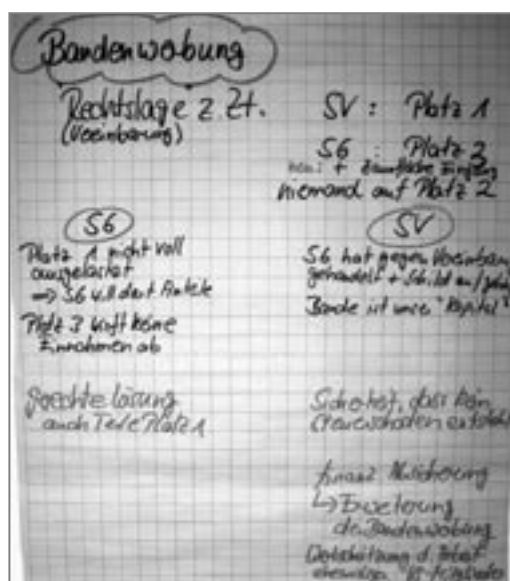 Bandenwerbung
Rechtslage z. Zt.
(Vereinbarung)
SV : Platz 1
SG : Platz 3
neu: +
niemand auf Platz 2
SG
Platz 1 nicht voll
ausgelastet
=> SG will dort Anteile
Platz 3 wirft keine
Einnahmen ab
gerechte Lösung
auch Teile Platz 1
SV
SG hat gegen Vereinbarung
gehandelt +
Bande ist unser "Kapital"
Sicherheit, dass kein
Steuerschaden entsteht
finanz. Absicherung
↳ Erweiterung
der Bandenwerbung
Wertschätzung d. Arbeit